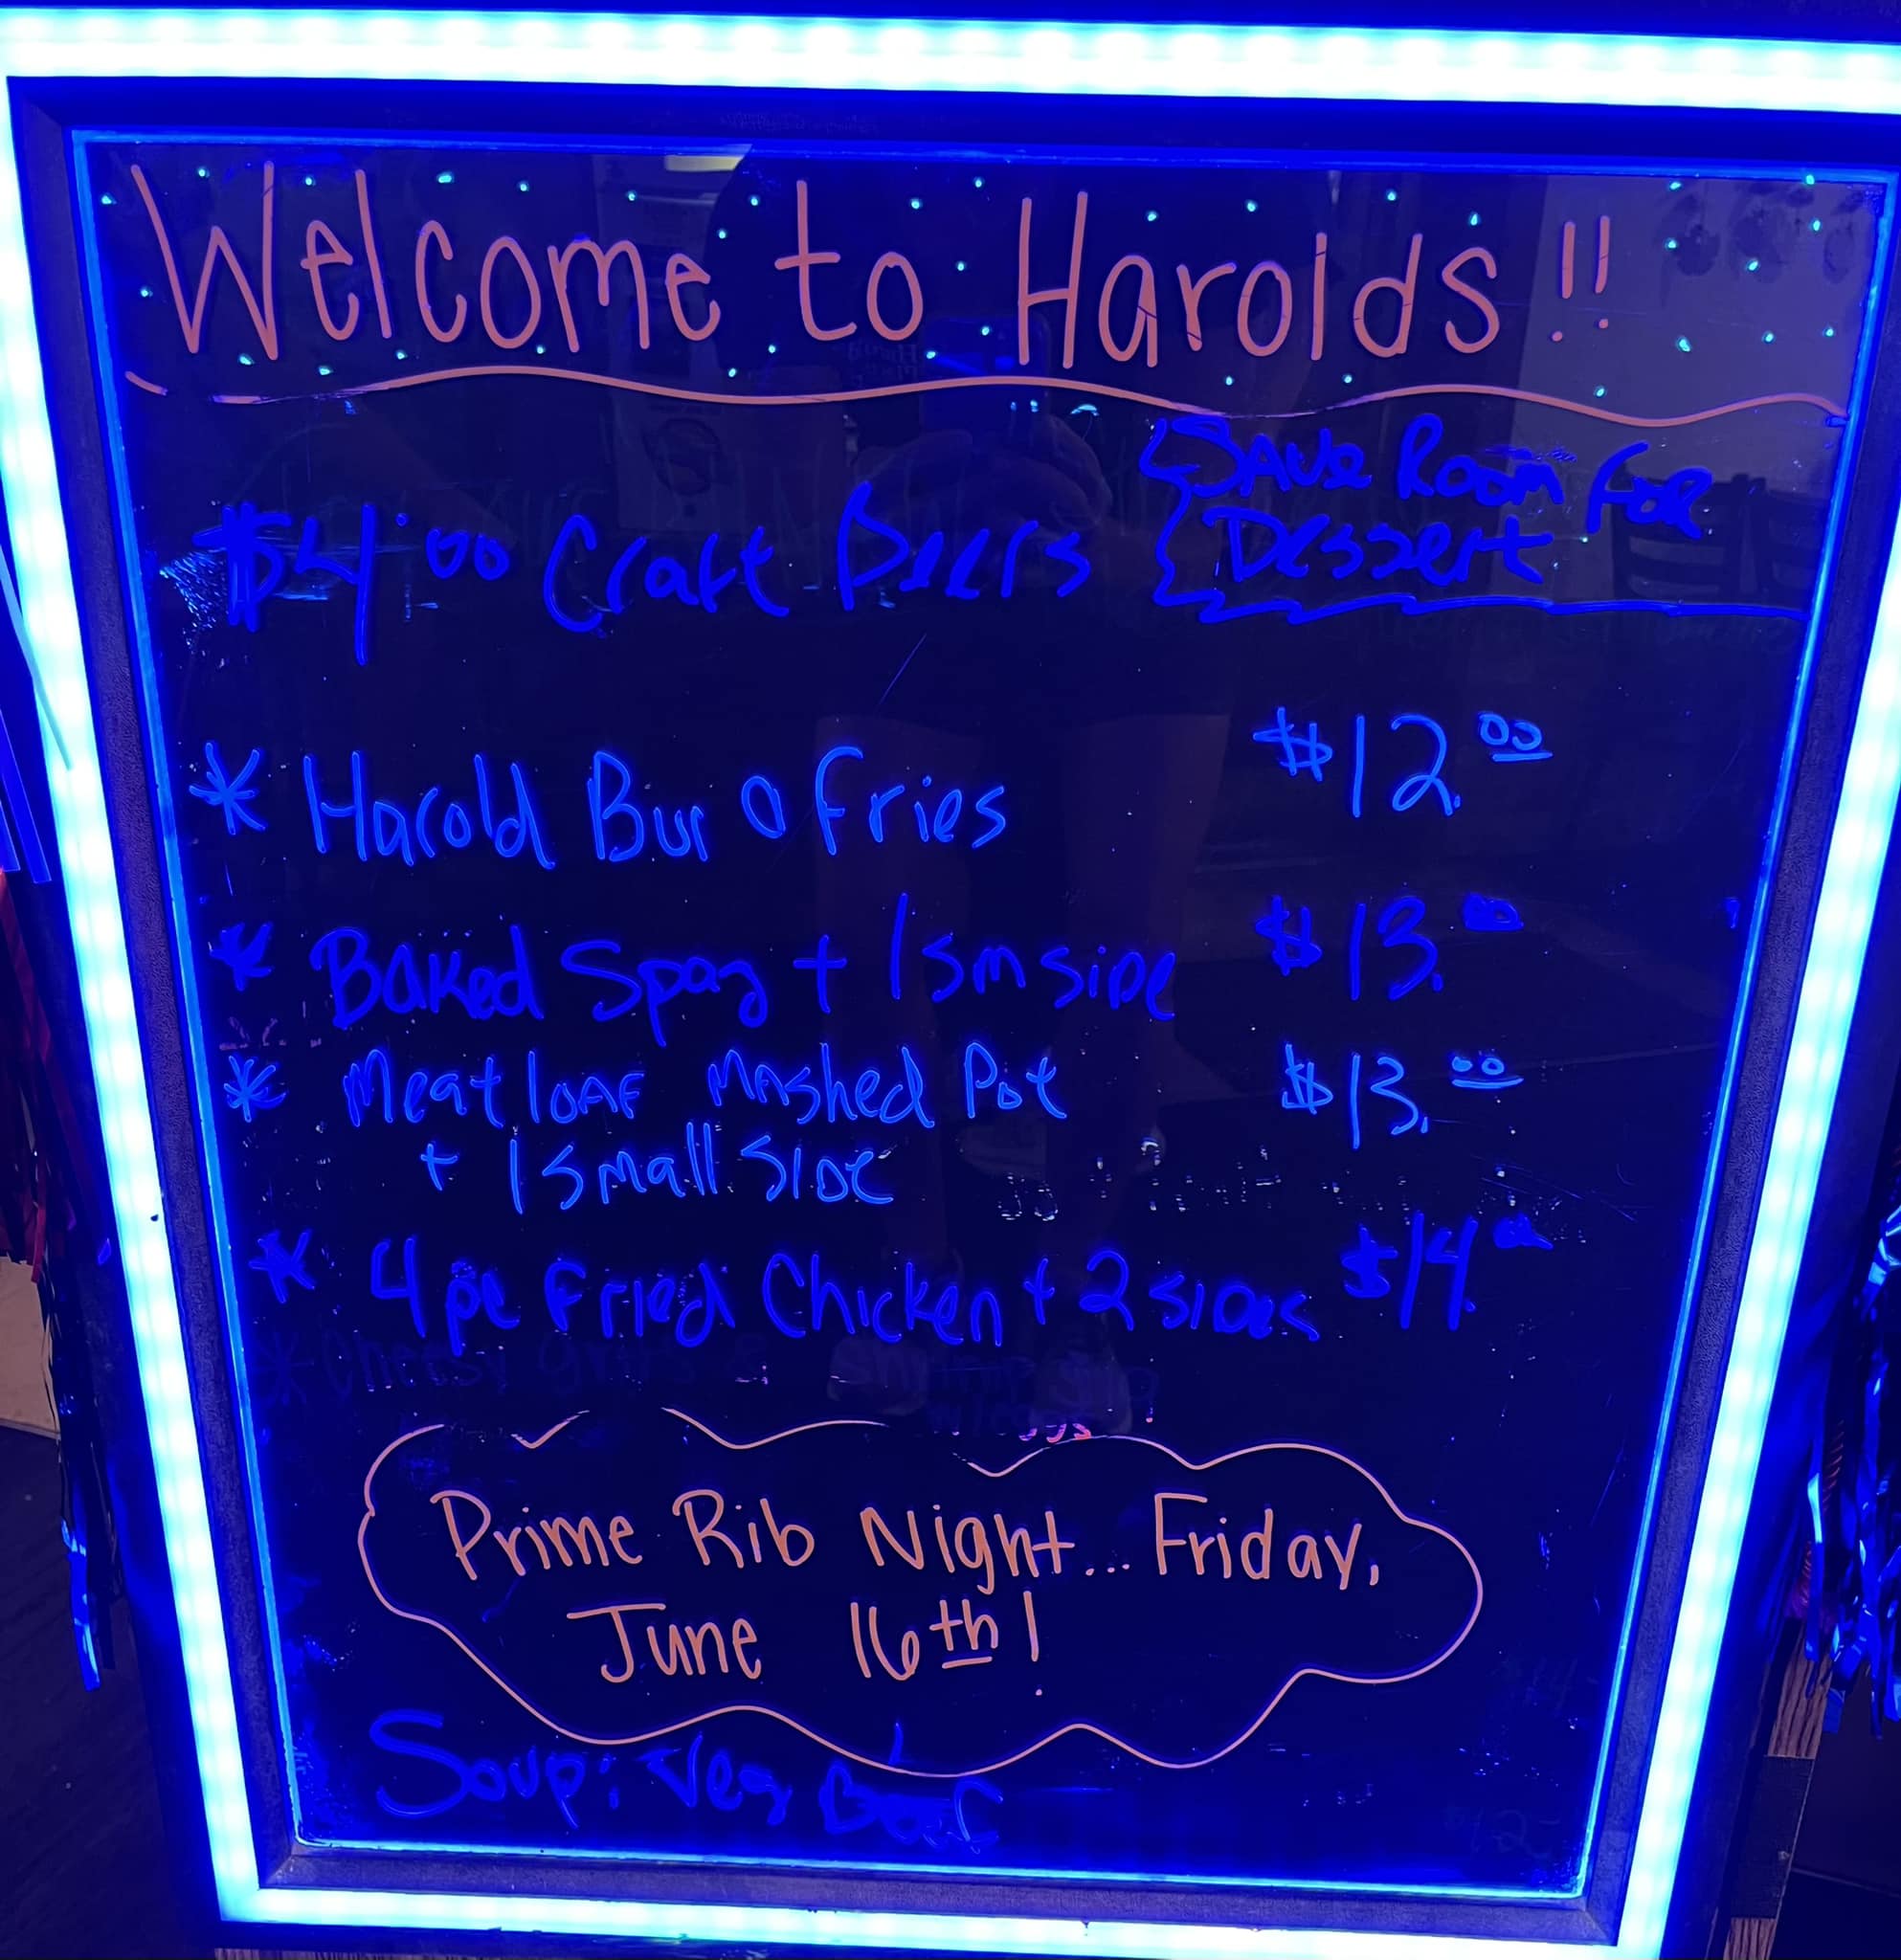 Welcome to Harolds!!
$4.00 Craft Beers
Save Room For
Dessert
* Harold Bur 0 fries $12.00
* Baked Spag + 1 sm side $13.00
* Meat loaf Mashed Pot $13.00
+ 1 small side
* 4 pc Fried Chicken + 2 sides $14.00
Prime Rib Night... Friday,
June 16th!
Soup: Veg Beef